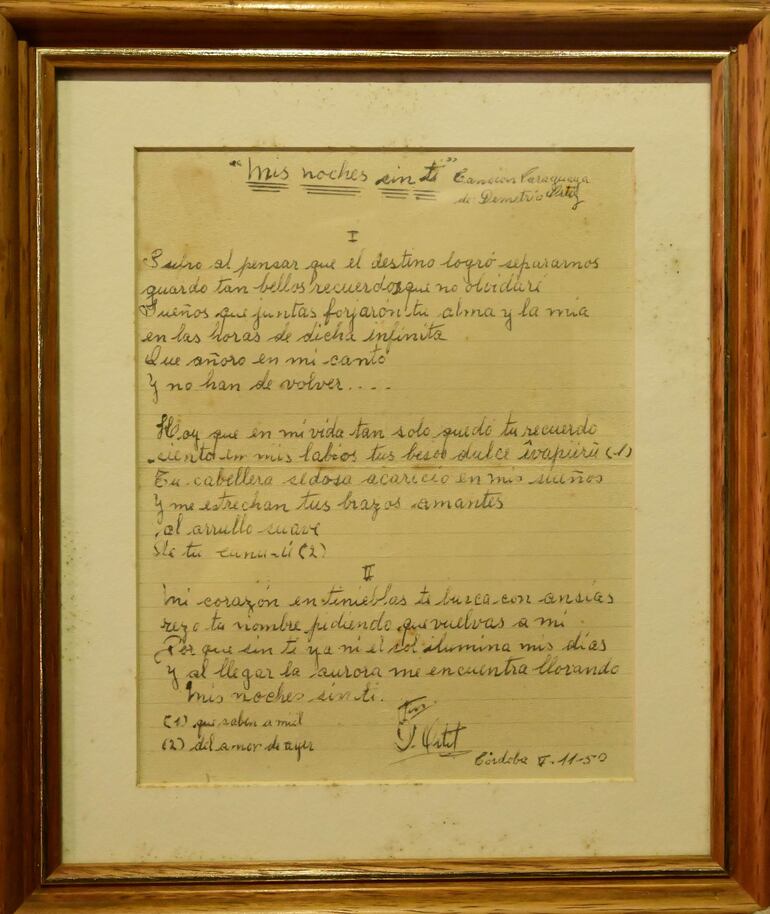 "Mis noches sin ti" Canción Paraguaya
de Demetrio Ortiz
I
Sufro al pensar que el destino logró separarnos
guardo tan bellos recuerdos que no olvidaré
Sueños que juntas forjarón tu alma y la mia
en las horas de dicha infinita
Que añoro en mi canto
Y no han de volver....
Hoy que en mi vida tan solo quedó tu recuerdo
siento en mis labios tus besos dulce (1)
Tu cabellera sedosa acaricio en mis sueños
Y me estrechan tus brazos amantes
al arrullo suave
de tu (2)
II
Mi corazón en tinieblas te busca con ansias
rezo tu nombre pidiendo que vuelvas a mi
Por que sin ti ya ni el sol ilumina mis días
Y al llegar la aurora me encuentra llorando
Mis noches sin ti.
(1) que saben a miel
(2) del amor de ayer
Fin
D. Ortiz
Córdoba 11-50